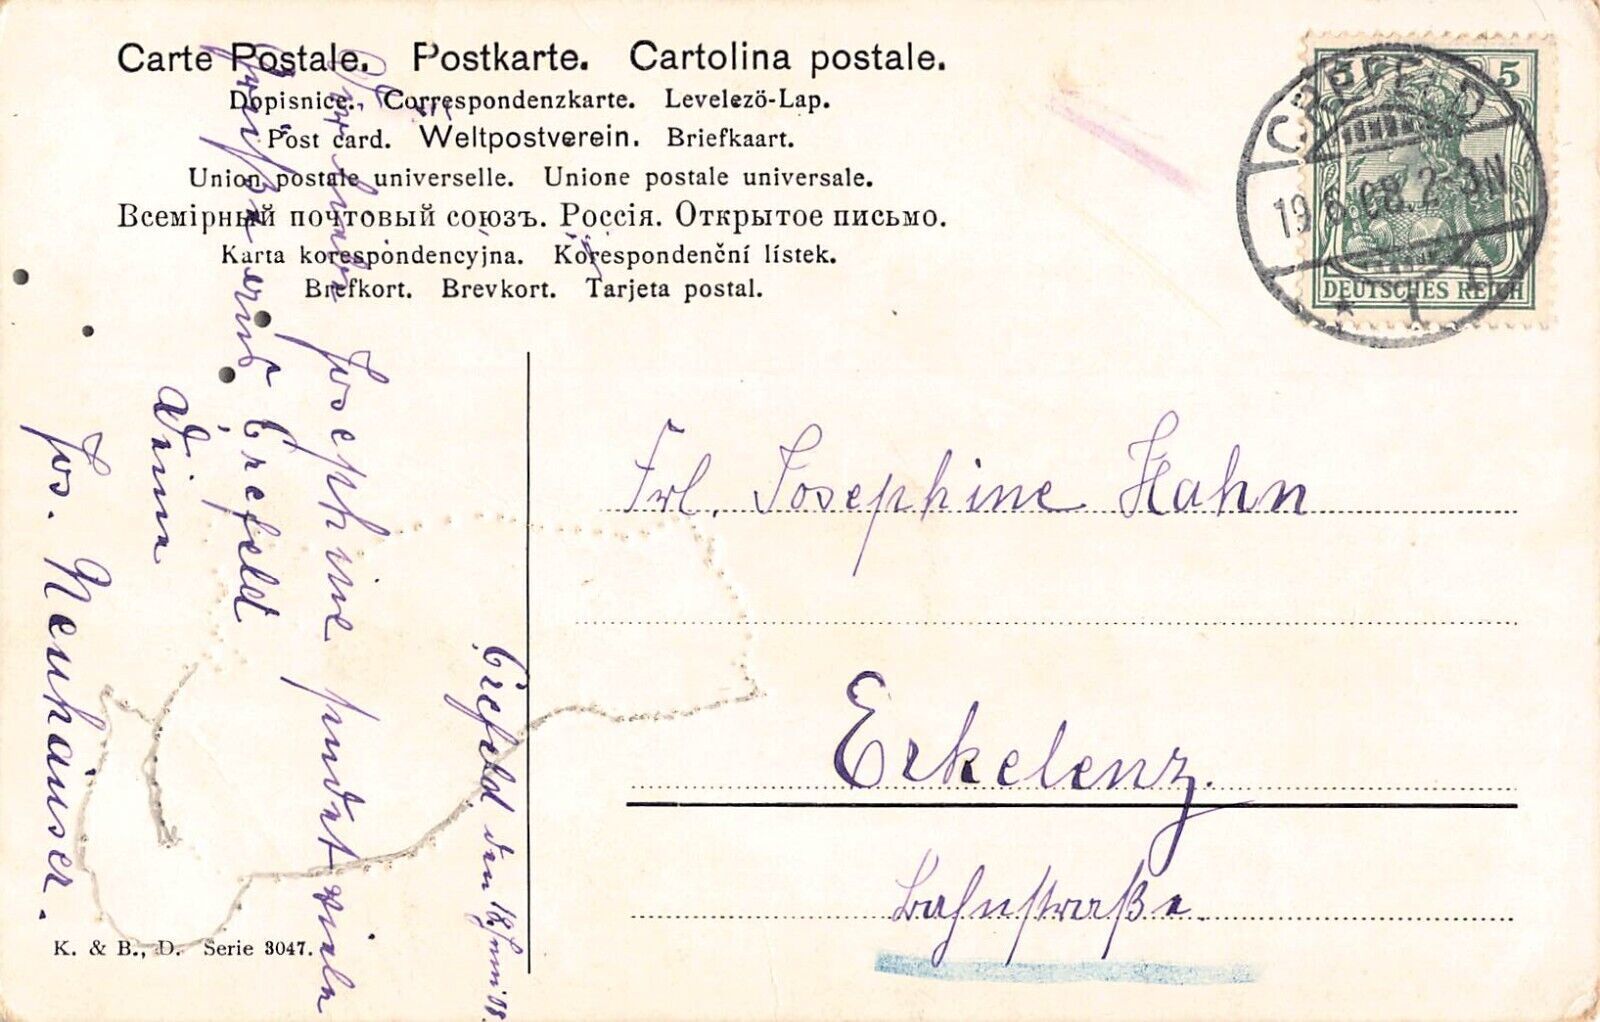 Carte Postale. Postkarte. Cartolina postale.
Dopisnice. Correspondenzkarte. Levelező-Lap.
Post card. Weltpostverein. Briefkaart.
Union postale universelle. Unione postale universale.
Всемірный почтовый союзъ. Россія. Открытое письмо.
Karta korespondencyjna. Korespondenční lístek.
Brefkort. Brevkort. Tarjeta postal.
5 5
DEUTSCHES REICH
CREFELD
19.6.08. 2-3N
* 1 n
Frl. Josephine Hahn
Erkelenz.
Bahnstraße
Crefeld den 19/Juni 08.
Josephine sendet viele
Grüße
Crefeld
Deine
Jos. Neuhäuser.
K. & B., D. Serie 3047.